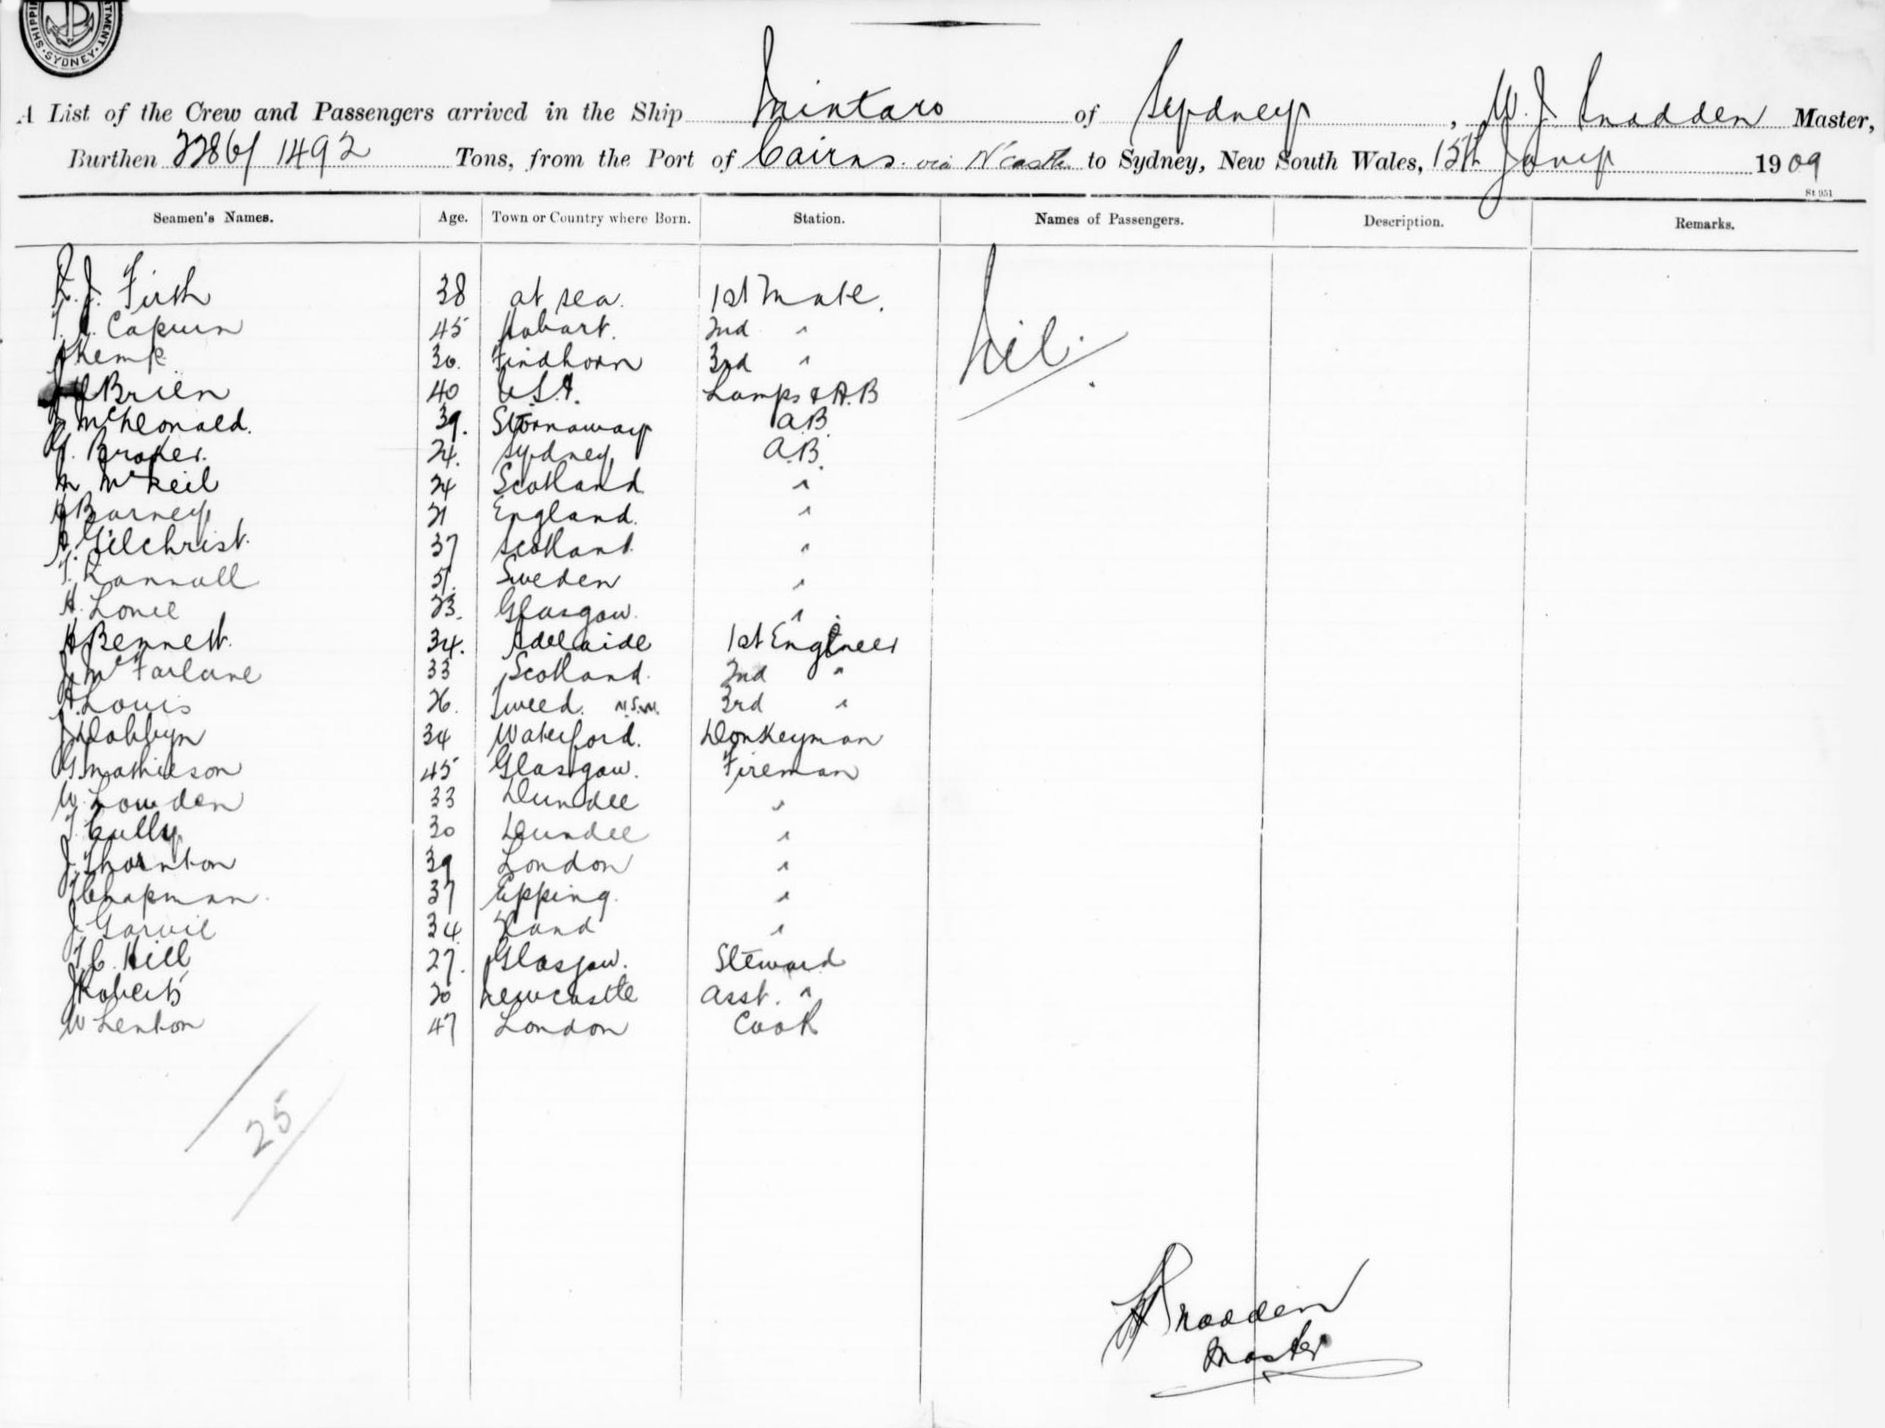 SYDNEY
A List of the Crew and Passengers arrived in the Ship Mintaro of Sydney, W. J. Snadden Master,
Burthen 2286/1492 Tons, from the Port of Cairns via N'castle to Sydney, New South Wales, 15th Jany 1909
St 951
Seamen's Names. Age. Town or Country where Born. Station. Names of Passengers. Description. Remarks.
R. J. Firth 38 at sea. 1st Mate. Nil.
Capurn 45 Hobart. 2nd "
Kemp 30. Findhorn 3rd "
O'Brien 40 U.S.A. Lamps & A.B
McDonald. 39. Stornaway A.B.
Broker. 24. Sydney A.B.
M McNeil 24 Scotland "
H Barney 21 England. "
A Gilchrist. 37 Scotland. "
T. Rannall 51. Sweden "
A. Lonie 23. Glasgow. "
H Bennett. 34. Adelaide 1st Engineer
J. McFarlane 33 Scotland. 2nd "
A. Louis 26. Tweed. N.S.W. 3rd "
J Dobbyn 34 Waterford. Donkeyman
G Mathieson 45 Glasgow. Fireman
W. Lowden 33 Dundee "
T. Cully 30 Dundee "
J. Thornton 39 London "
Chapman. 37 Epping. "
J. Garvie 34 "
T C. Hill 27. Glasgow. Steward
J Roberts 20 Newcastle Asst. "
W Lenton 47 London Cook
25
Snadden
Master